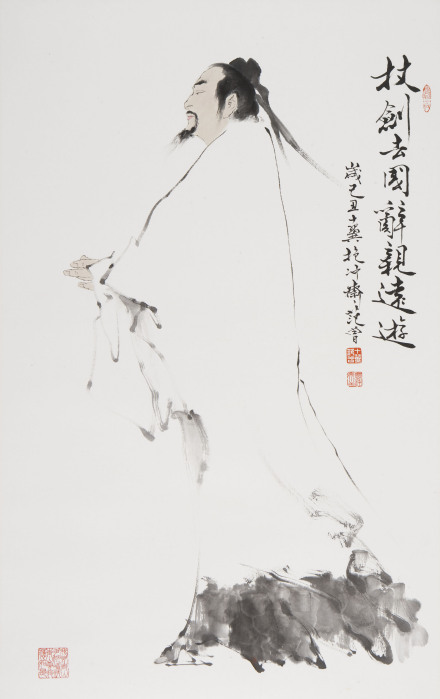 杖劍去國辭親遠遊
歲己丑十翼抱沖齋范曾